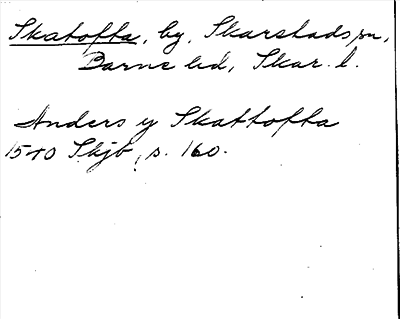 Skatofta, by, Skarstads sn,
Barne hd, Skar. l.
Anders y Skattoffta
1540 Skjb, s. 160.